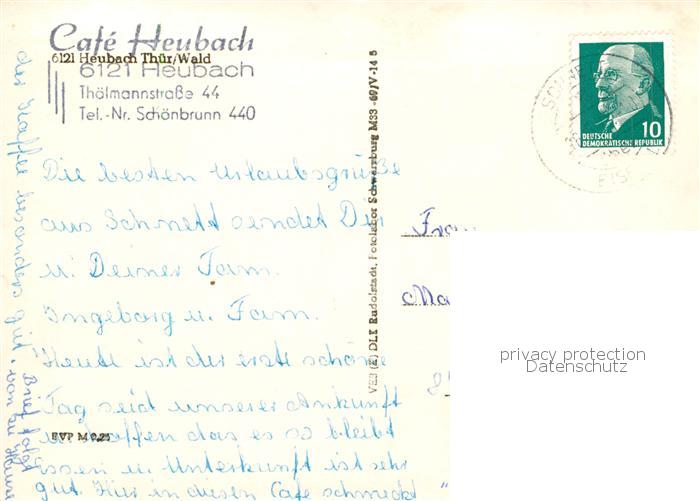 Café Heubach
6121 Heubach Thür/Wald
6121 Heubach
Thälmannstraße 44
Tel.-Nr. Schönbrunn 440
DEUTSCHE
DEMOKRATISCHE REPUBLIK
10
Die besten Urlaubsgrüße
aus Schnett sendet Dir
u. Deiner Fam.
Ingeborg u. Fam.
Heute ist der erste schöne
Tag seid unserer Ankunft
u. hoffen das es so bleibt
Essen u. Unterkunft ist sehr
gut. Hier in diesen Cafe schmeckt
der Kaffee besonders gut.
Brief folgt
EVP M 0,25
VEB (K) DLK Rudolstadt, Fotolabor Schwarzburg M33 -69/V-14 5
privacy protection
Datenschutz